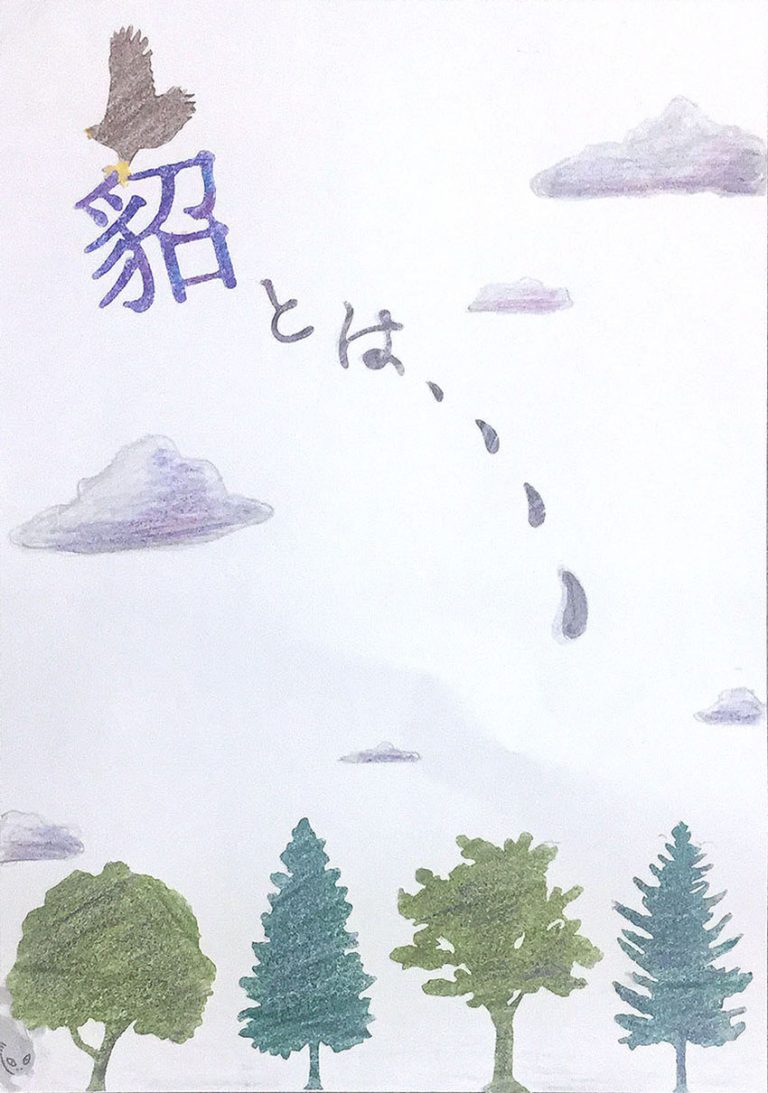 貂とは、、、、